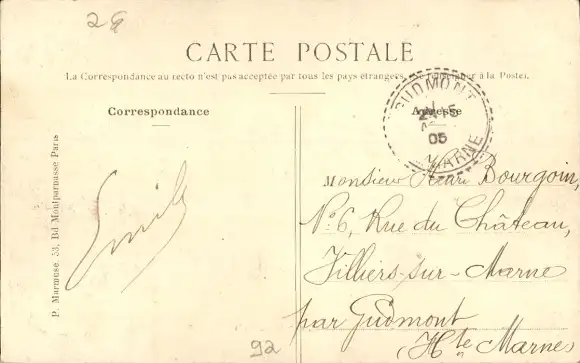 CARTE POSTALE
La Correspondance au recto n'est pas acceptée par tous les pays étrangers. Se renseigner à la Poste.
Correspondance
Adresse
GUDMONT
05
MARNE
Emile
Monsieur Henri Bourgoin
N° 6, Rue du Château,
Villiers-sur-Marne
par Gudmont
(Hte Marne)
P. Marmuse, 53, Bd. Montparnasse Paris
92